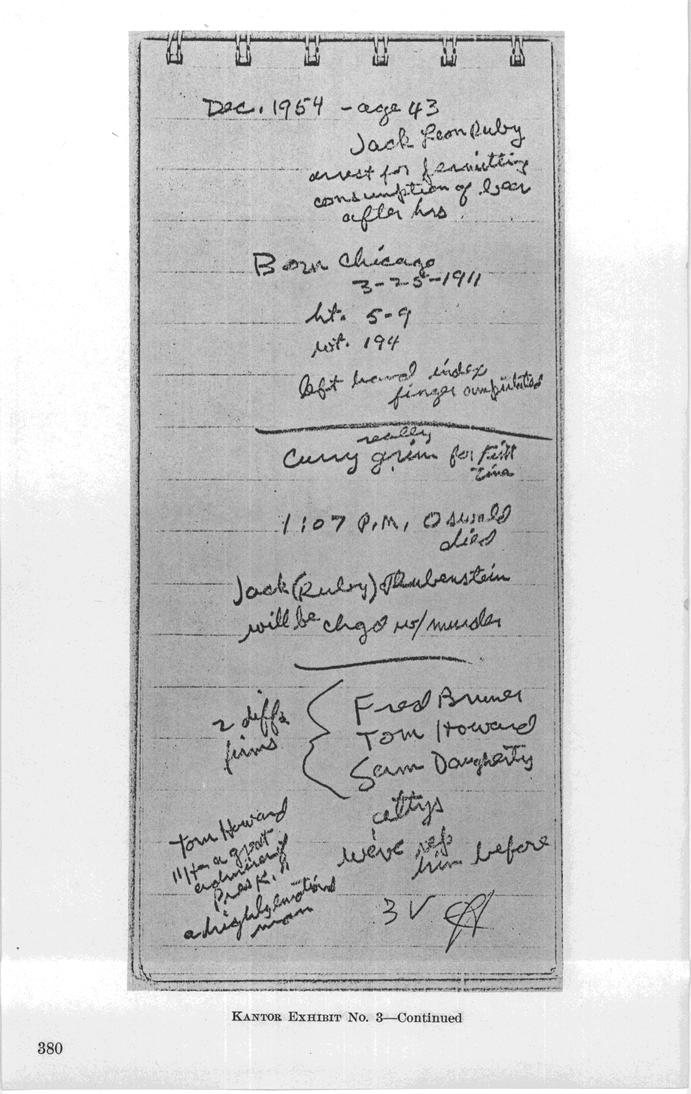 Dec. 1954 - age 43
Jack Leon Ruby
arrest for permitting
consumption of beer
after hrs
Born Chicago
3-25-1911
ht. 5-9
wt. 194
left hand index
finger amputated
really
Curry grim for first
time
1:07 P.M. Oswald
died
Jack (Ruby) Rubenstein
will be chgd w/ murder
2 diff
firms
Fred Bruner
Tom Howard
Sam Daugherty
attys
we've rep
him before
Tom Howard
"He a great
admirer of
Pres K."
a highly emotional
man
3 V
KANTOR EXHIBIT No. 3—Continued
380